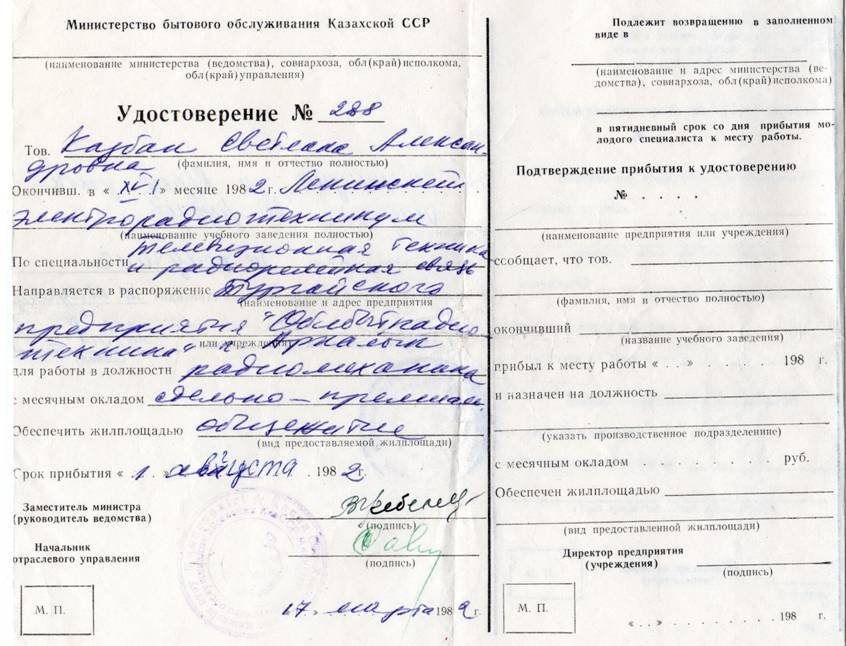 Министерство бытового обслуживания Казахской ССР
(наименование министерства (ведомства), совнархоза, обл(край)исполкома,
обл(край)управления)
Удостоверение № 288
Тов. Казбан Светлана Алексан-
дровна
(фамилия, имя и отчество полностью)
Окончивш. в « XVI » месяце 1982 г. Ленинский
электрорадиотехникум
(наименование учебного заведения полностью)
По специальности телевизионная техника
и радиорелейная связь
Направляется в распоряжение Тургайского
(наименование и адрес предприятия
предприятия "Облбытрадио-
или учреждения)
техника" г. Аркалык
для работы в должности радиомеханика
с месячным окладом сдельно – премиал.
Обеспечить жилплощадью общежитие
(вид предоставляемой жилплощади)
Срок прибытия « 1 » августа . 1982 г.
Заместитель министра
(руководитель ведомства)
(подпись)
Начальник
отраслевого управления
(подпись)
М. П.
17. марта 1982 г.
Подлежит возвращению в заполненном
виде в
(наименование и адрес министерства (ве-
домства), совнархоза, обл(край) исполкома)
в пятидневный срок со дня прибытия мо-
лодого специалиста к месту работы.
Подтверждение прибытия к удостоверению
№ . . . .
(наименование предприятия или учреждения)
сообщает, что тов.
(фамилия, имя и отчество полностью)
окончивший
(название учебного заведения)
прибыл к месту работы « . . » . . . . . 198 г.
и назначен на должность
(указать производственное подразделение)
с месячным окладом . . . . . . . . руб.
Обеспечен жилплощадью
(вид предоставленной жилплощади)
Директор предприятия
(учреждения)
(подпись)
М. П.
« . . » 198 г.